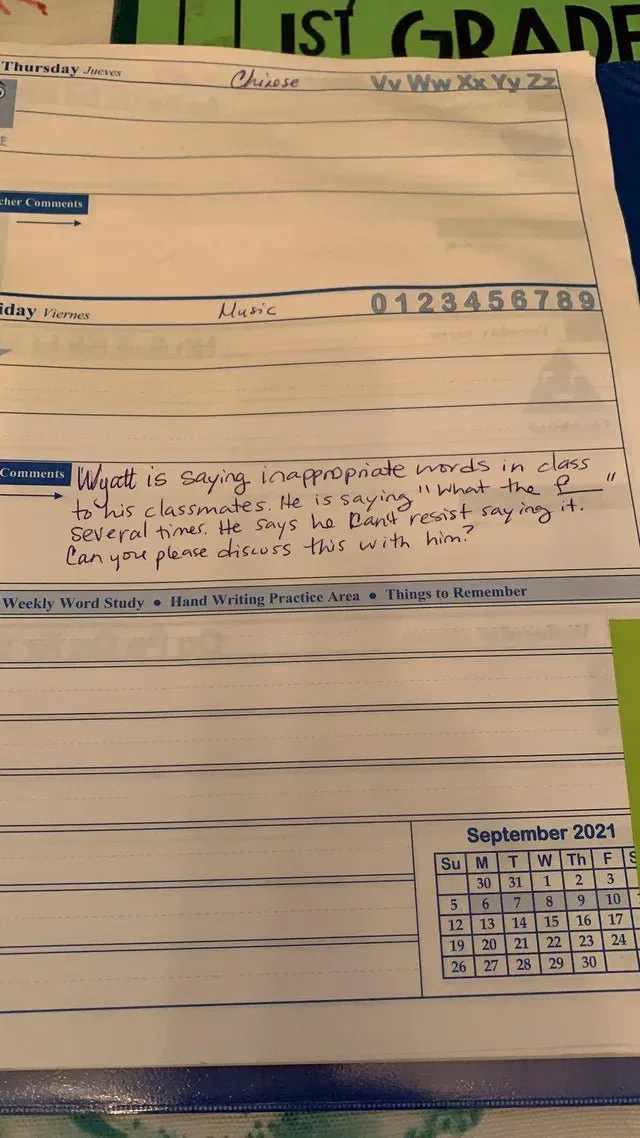 1ST GRADE
Thursday Jueves Chinese Vv Ww Xx Yy Zz
cher Comments
iday Viernes Music 0 1 2 3 4 5 6 7 8 9
Comments
Wyatt is saying inappropriate words in class
to his classmates. He is saying "What the f__"
several times. He says he can't resist saying it.
Can you please discuss this with him?
Weekly Word Study • Hand Writing Practice Area • Things to Remember
September 2021
Su M T W Th F S
30 31 1 2 3
5 6 7 8 9 10
12 13 14 15 16 17
19 20 21 22 23 24
26 27 28 29 30